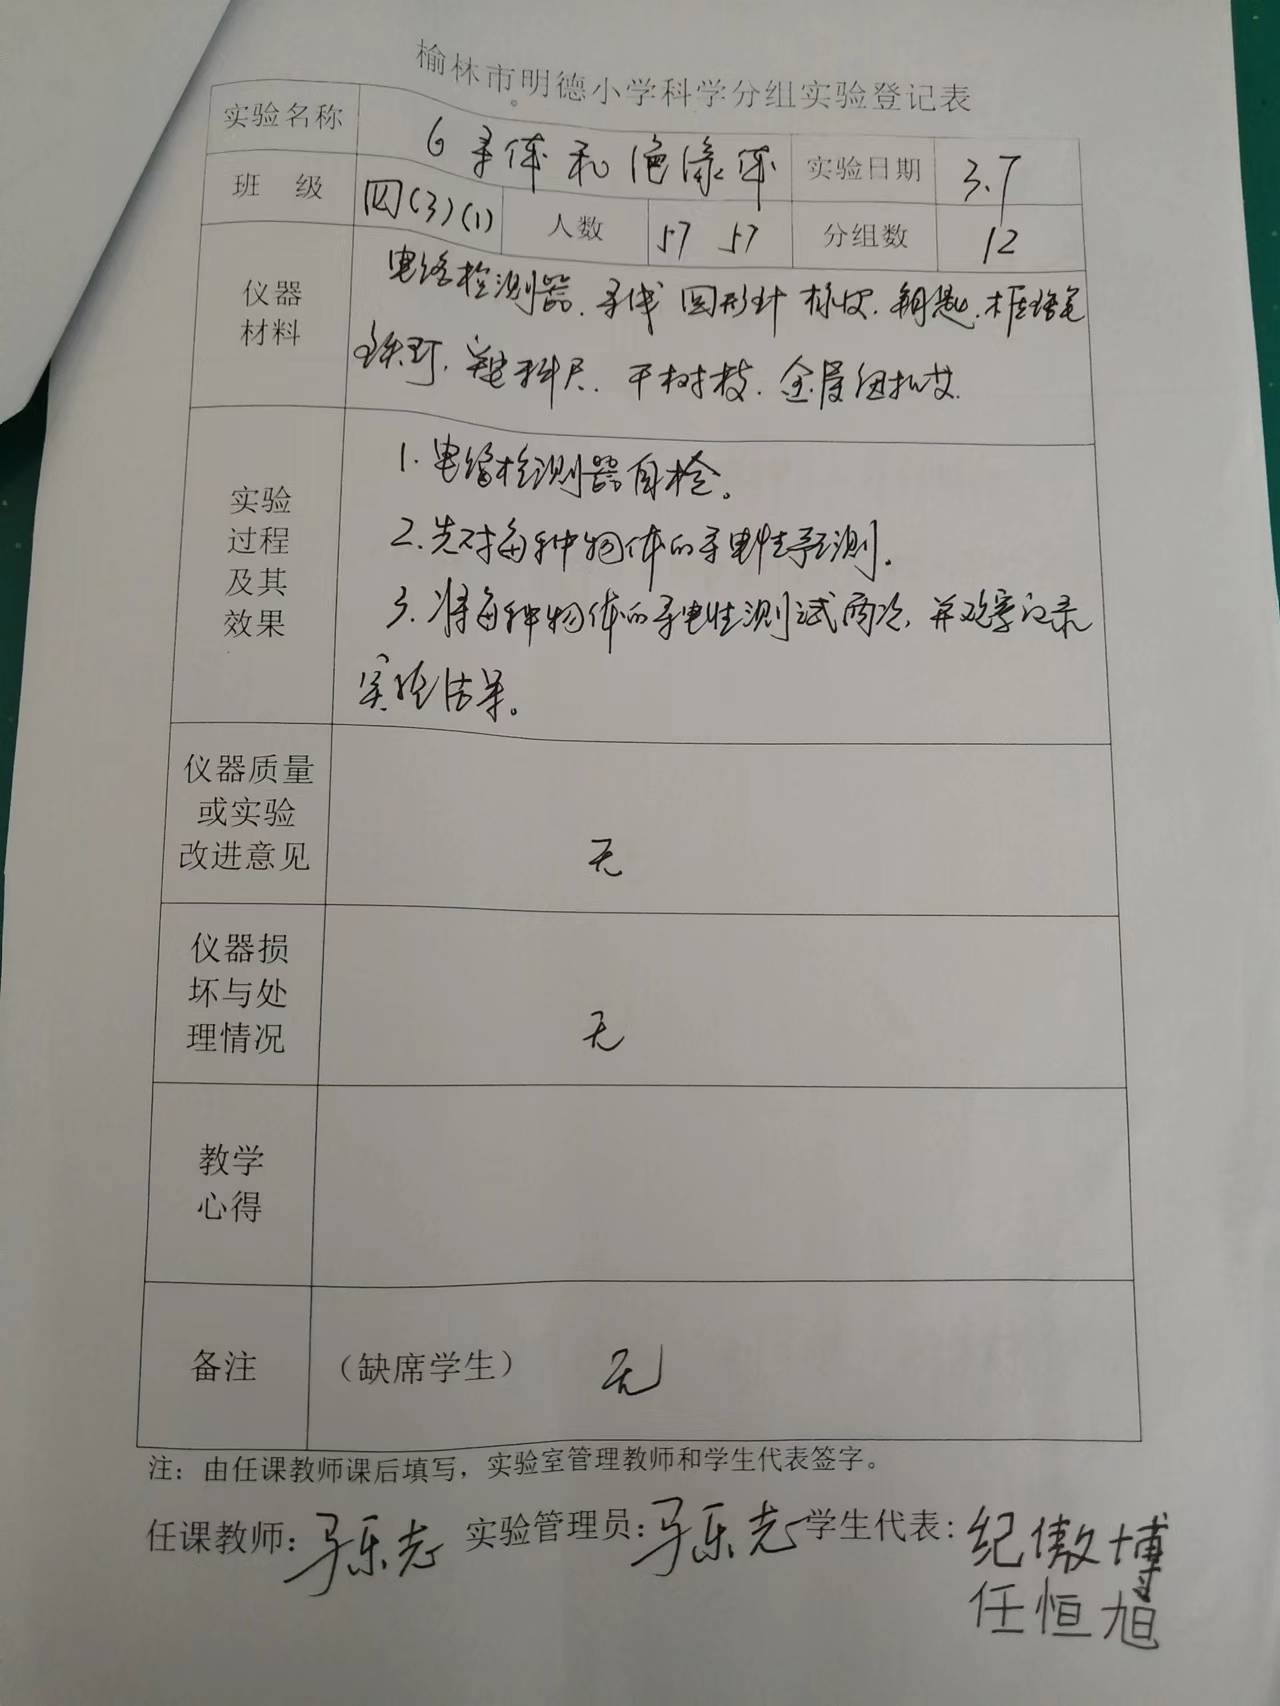 榆林市明德小学科学分组实验登记表
实验名称 6 导体和绝缘体 实验日期 3.7
班 级 四(3)(1) 人数 57 57 分组数 12
仪器
材料
电路检测器、导线 回形针 橡皮、钥匙、
铁钉、塑料尺、干树枝、金属纽扣
实验
过程
及其
效果
1.电路检测器自检。
2.先对每种物体的导电性预测。
3.将每种物体的导电性测试两次,并观察记录
实验结果。
仪器质量
或实验
改进意见
无
仪器损
坏与处
理情况
无
教学
心得
备注 (缺席学生) 无
注：由任课教师课后填写，实验室管理教师和学生代表签字。
任课教师：马乐志 实验管理员：马乐志 学生代表：纪傲博
任恒旭